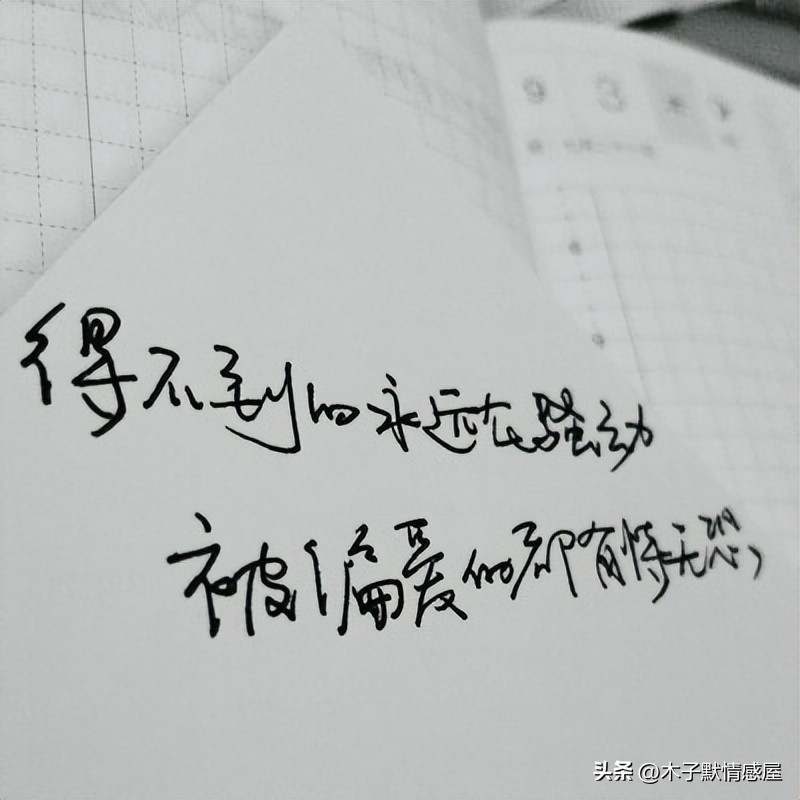 9 3
得不到的永远在骚动
被偏爱的都有恃无恐,
头条 @木子默情感屋